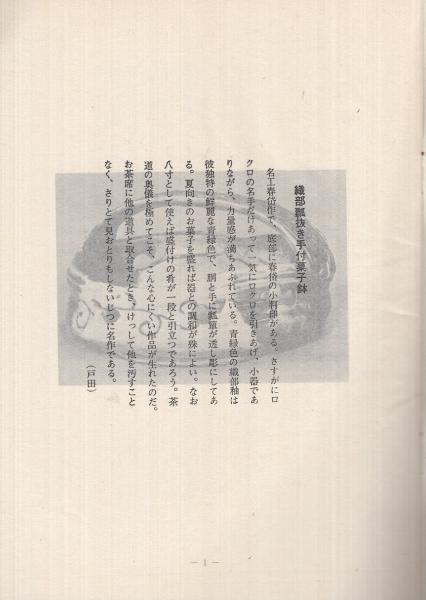 織部瓢抜き手付菓子鉢
名工春岱作で、底部に春岱の小判印がある。さすがにロ
クロの名手だけあって一気にロクロを引きあげ、小器であ
りながら、力量感が満ちあふれている。青緑色の織部釉は
彼独特の鮮麗な青緑色で、胴と手に瓢箪が透し彫にしてあ
る。夏向きのお菓子を盛れば器との調和が殊によい。なお
八寸として使えば盛付けの肴が一段と引立つであろう。茶
道の奥儀を極めてこそ、こんな心にくい作品が生れたのだ。
お茶席に他の道具と取合せたとき、けっして他を汚すこと
なく、さりとて見おとりもしないじつに名作である。
(戸田)
— 1 —